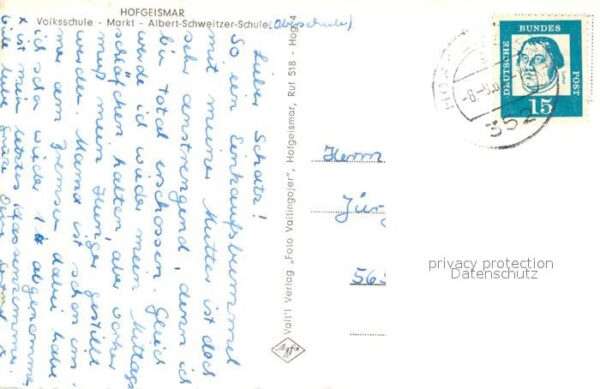 HOFGEISMAR
Volksschule - Markt - Albert-Schweitzer-Schule (Abtschule)
Lieber Schatz!
So ein Einkaufsbummel
mit meiner Mutter ist doch
sehr anstrengend, denn ich
bin total erschossen. Gleich
werde ich wieder mein Mittags
schläfchen halten, aber vorher
muß mein Hunger gestillt
werden. Mama ist schon im
mer am Bremsen dabei habe
ich schon wieder 1 abgenommen
ist mein letztes
viele liebe
Grüße Deine
Vait'l Verlag "Foto Vaitlingojer", Hofgeismar, Ruf 518 - Hog 4
Agfa
DEUTSCHE BUNDES POST
Luther
15
HOF
-6.-9.6
352
Herrn
Jür
563
privacy protection
Datenschutz